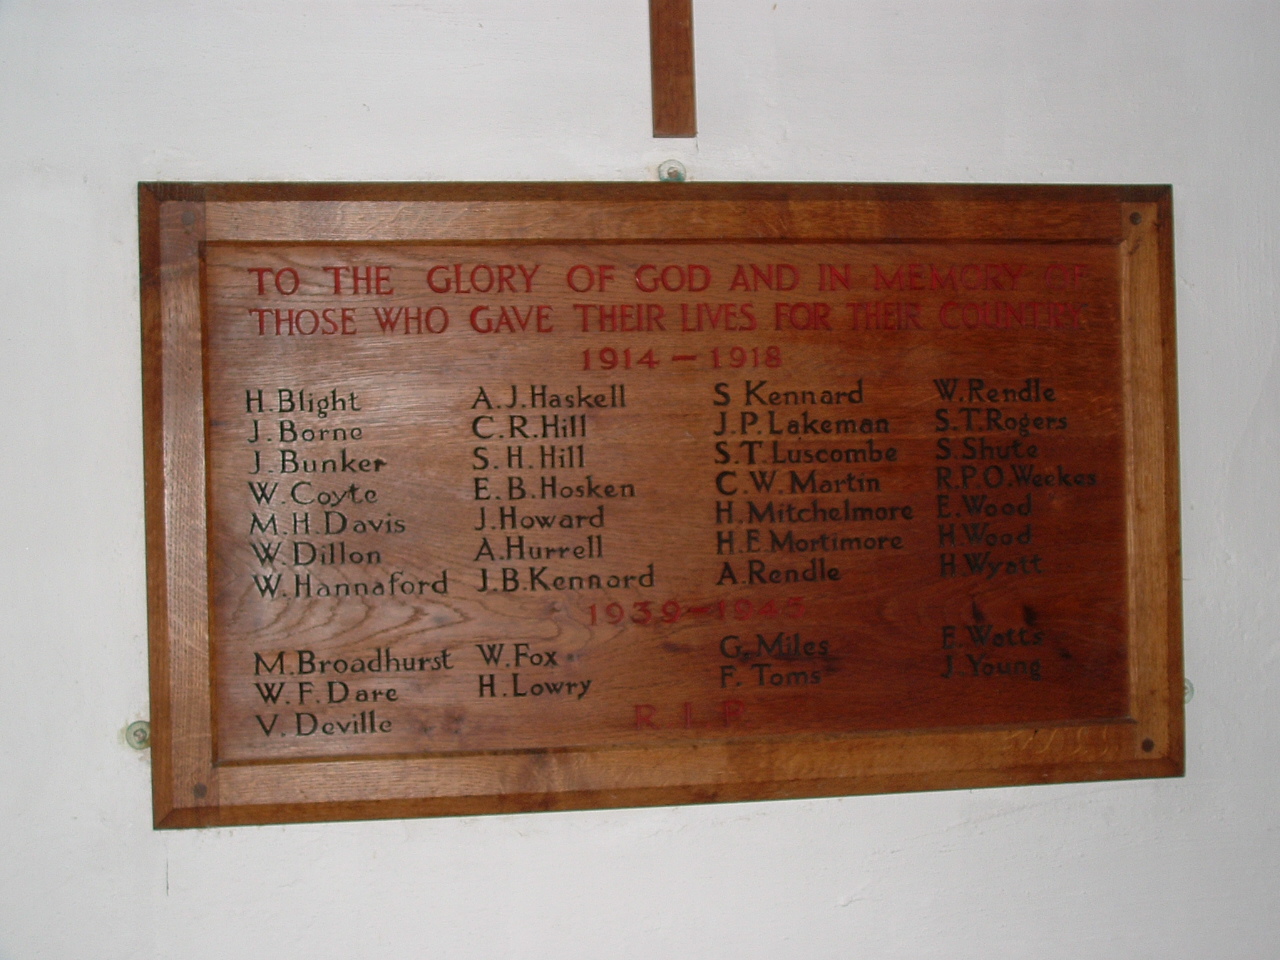 TO THE GLORY OF GOD AND IN MEMORY OF
THOSE WHO GAVE THEIR LIVES FOR THEIR COUNTRY
1914 – 1918
H. Blight A. J. Haskell S Kennard W. Rendle
J. Borne C. R. Hill J. P. Lakeman S. T. Rogers
J. Bunker S. H. Hill S. T. Luscombe S. Shute
W. Coyte E. B. Hosken C. W. Martin R. P. O. Weekes
M. H. Davis J. Howard H. Mitchelmore E. Wood
W. Dillon A. Hurrell H. E. Mortimore H. Wood
W. Hannaford J. B. Kennard A. Rendle H. Wyatt
1939 – 1945
M. Broadhurst W. Fox G. Miles E. Watts
W. F. Dare H. Lowry F. Toms J. Young
V. Deville
R I P